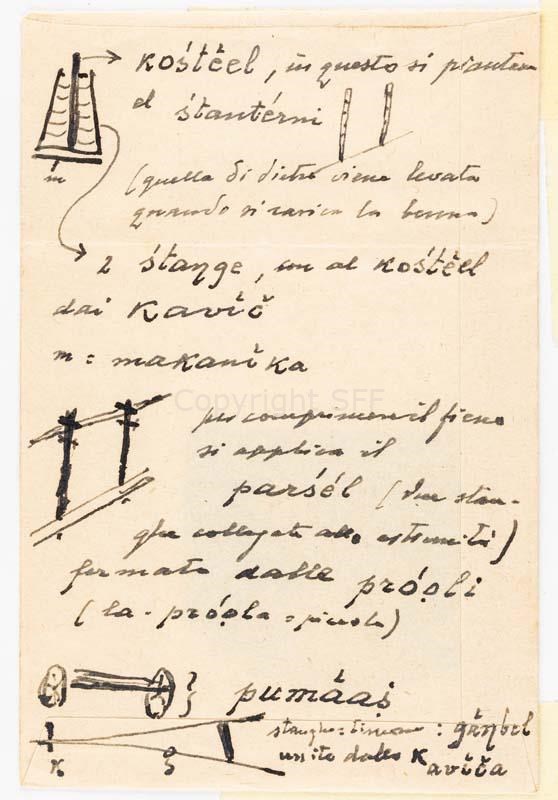 kośtĕel, in questo si piantano
el śtantérni
m
(quella di dietro viene levata
quando si carica la benna)
2 śtaŋge, un al kośtĕel
dai kavič
m = makanika
Copyright SFF
per comprimere il fieno
si applica il
parśél (due stan-
ghe collegate alle estremità)
fermate dalle próọli
(la próọla = piccola)
pumáaś
stanghe = timone : gãŋbel
unite dalla kaviča
κ